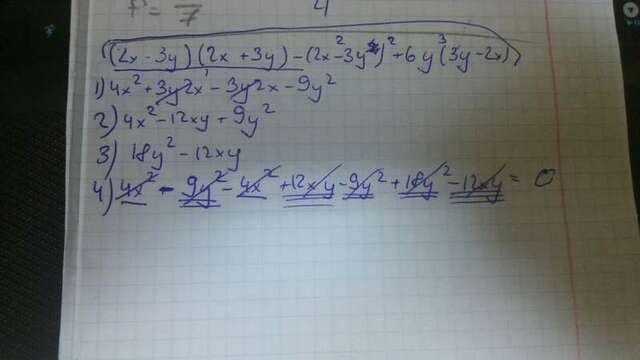 7
4
(2x - 3y)(2x + 3y) - (2x² - 3y)² + 6y³(3y - 2x)
1) 4x² + 3y2x - 3y2x - 9y²
2) 4x² - 12xy + 9y²
3) 18y² - 12xy
4) 4x² - 9y² - 4x² + 12xy - 9y² + 18y² - 12xy = 0